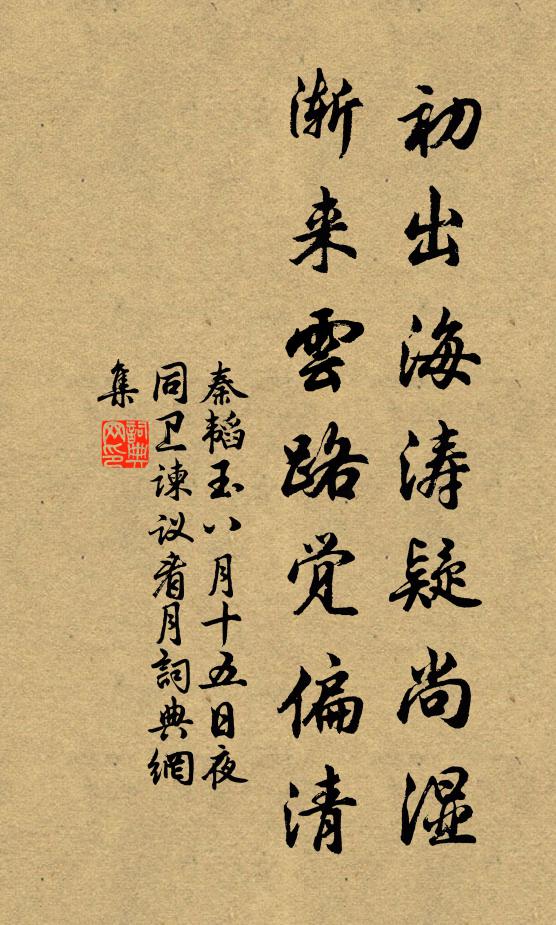 初出海涛疑尚湿
渐来雲路觉偏清
秦韬玉八月十五日夜
同卫谏议看月詞典網
集
詞典網印